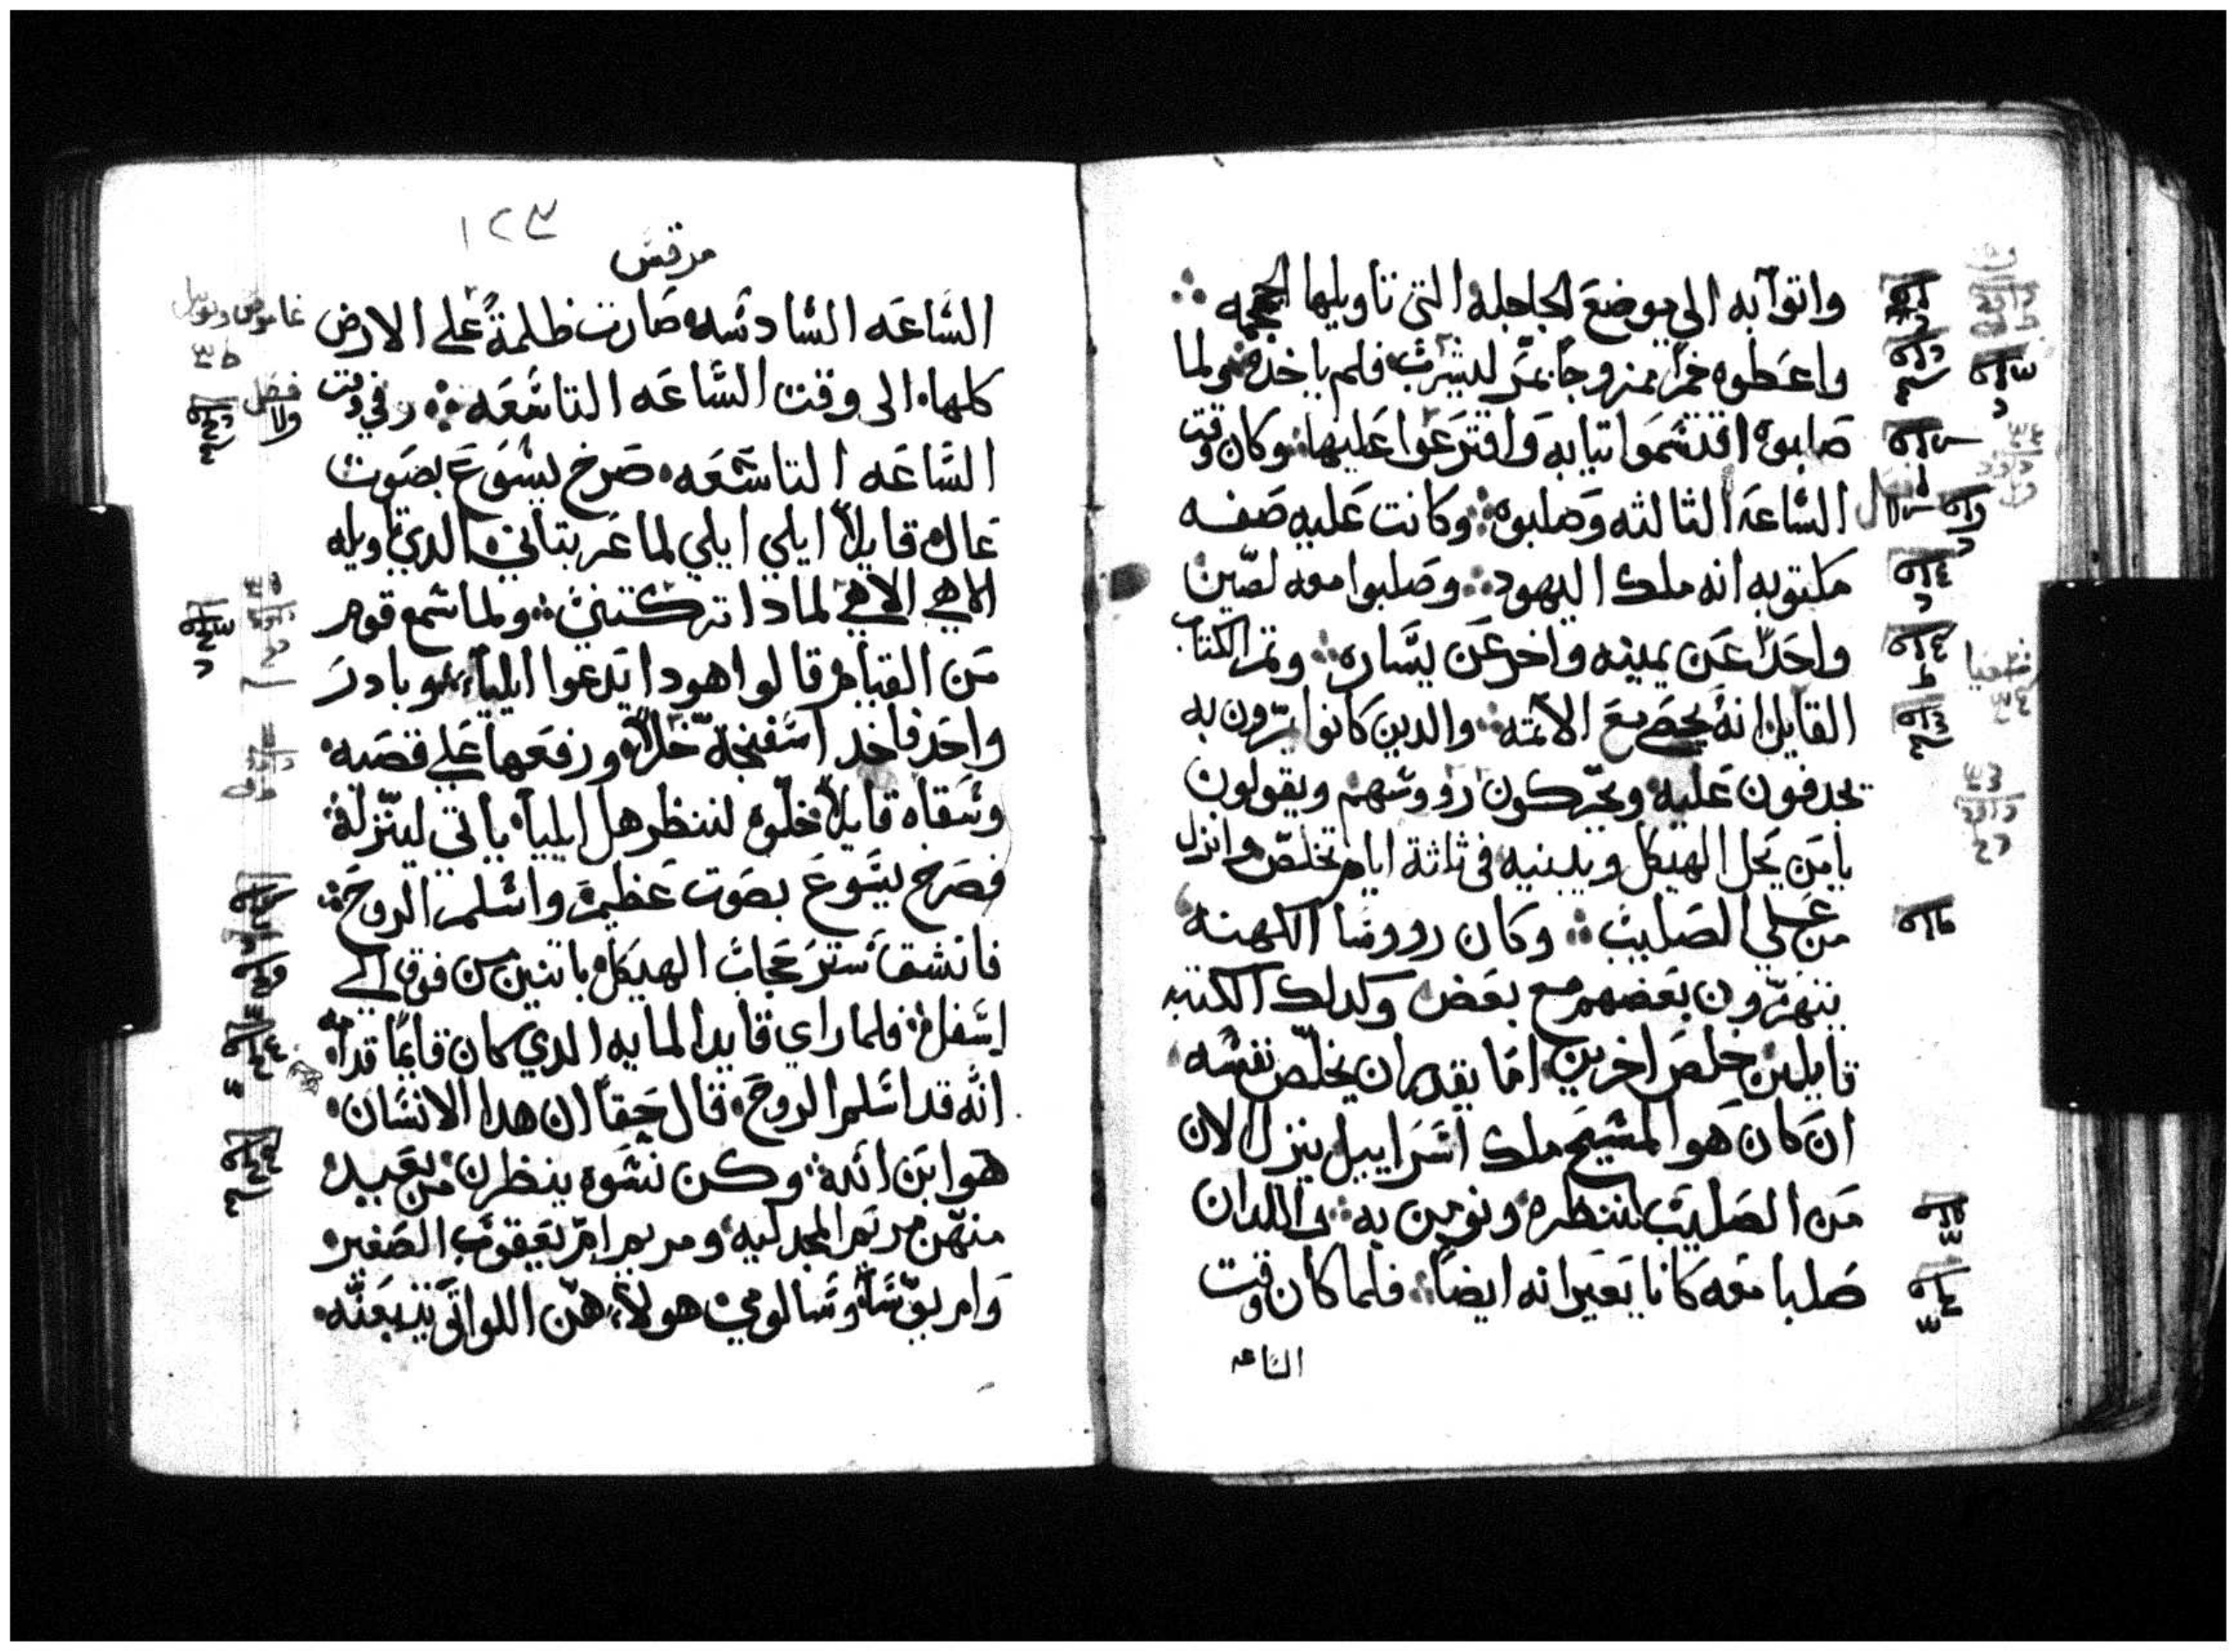 واتوا به الي موضع الجاجلة التي تاويلها الجمجمه
واعطوه خمرًا ممزوجًا بمرّ ليشرب فلم ياخذه ولما
صلبوه اقتسموا تيابه واقترعوا عليها وكان وقت
الساعة الثالثه وصلبوه وكانت عليه صفه
مكتوبه انه ملك اليهود وصلبوا معه لصّين
واحدًا عن يمينه واخر عن يساره وتم الكتاب
القايل انه يحصي مع الاثمه والدين كانوا يمرّون به
يجدفون عليه ويحرّكون رووسهم ويقولون
يا من يحل الهيكل ويبنيه في ثلثة ايام تخلّص وانزل
من علي الصليب وكان رووسا الكهنه
يتهزّون بعضهم مع بعض وكدلك الكتبه
قايلين خلص اخرين اما يقدر ان يخلّص نفسه
ان كان هو المسيح ملك اسراييل ينزل الان
من الصليب لننظره ونومن به واللدان
صلبا معه كانا يعيرانه ايضًا فلما كان وقت
الساعه
١٢٣
مرقس
الساعه السادسه صارت ظلمةً علي الارض
كلها الى وقت الساعه التاسعه وفي وقت
الساعه التاسعه صرخ يسوع بصوت
عال قايلًا ايلي ايلي لما عزبتاني الدي تاويله
الاهي الاهي لمادا تركتني ولما سمع قوم
من القيام قالوا هودا يدعوا ايلياء وبادر
واحد فاخد اسفنجة خلًا ورفعها علي قصبه
وسقاه قايلًا خلّوه لننظر هل ايلياء ياتي لينزّله
فصرخ يسوع بصوت عظيم واسلم الروح
فانشق ستر حجاب الهيكل باتنين من فوق الي
اسفل فلما راي قايد المايه الدي كان قايمًا قدامه
انه قد اسلم الروح قال حقًا ان هدا الانسان
هو ابن الله وكن نسوه ينظرن من بعيد
منهن مريم المجدليه ومريم امّ يعقوب الصغير
وام يوسا وسالومي هولاء هنّ اللواتي يتبعنه